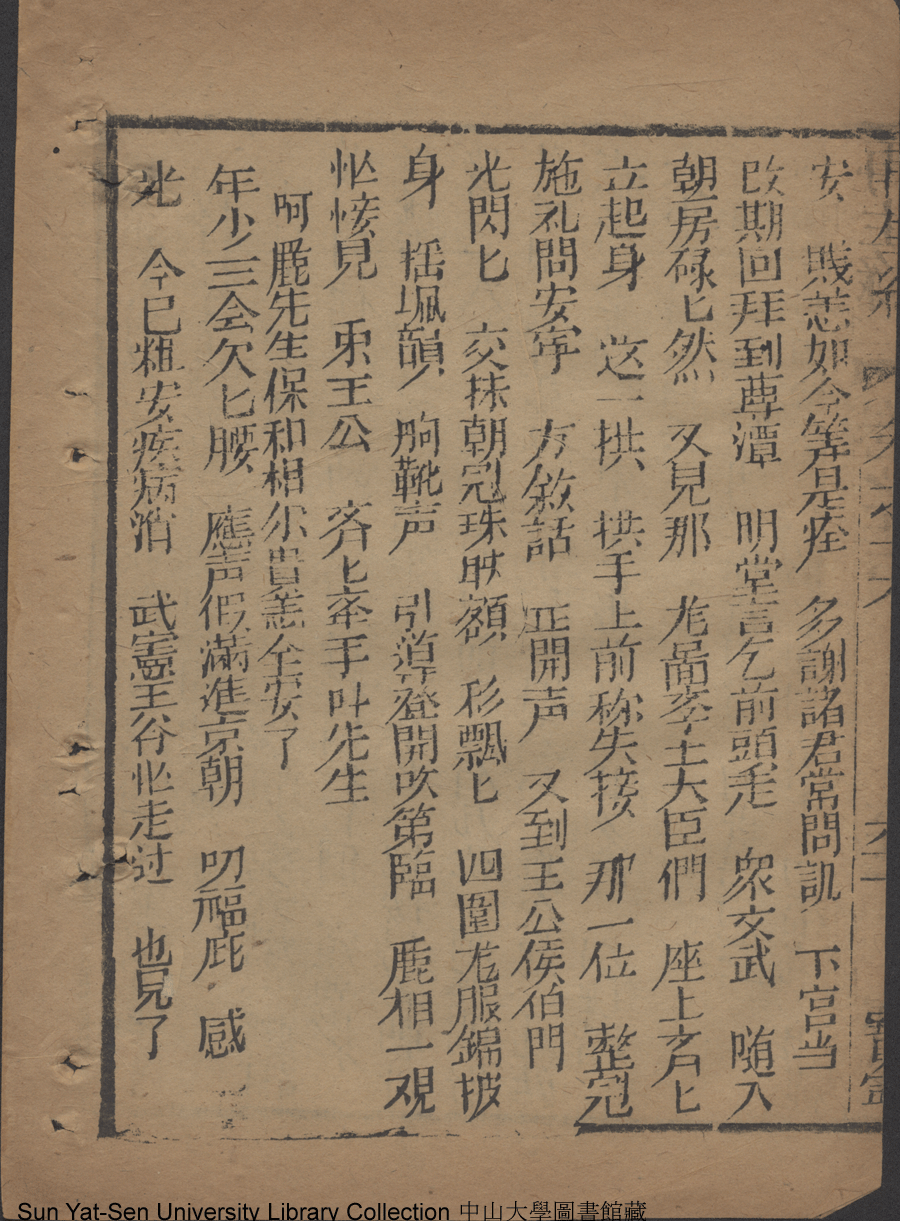 安　賤恙如今算是痊　多謝諸君常問訊　下官当
改期回拜到尊潭　明堂言乞前頭走　衆文武　随入
朝房碌匕然　又見那　大臣們　座上齐匕
立起身　这一拱　拱手上前称失接　那一位　整冠
施礼問安寧　方敘話　正開声　又到王公侯伯門
光閃匕　交抹朝冠珠映額　彩飄匕　四圍尨服錦披
身　揺珮韻　胸靴声　引導登開吹第臨　鹿相一覌
忙接見　東王公　齐上牽手叶先生
呵鹿先生保和相尔貴恙全安了
年少三会欠匕腰　應声假滿進京朝　叨福庇　感
光　今已粗安疾病消　武憲王谷忙走过　也見了
Sun Yat-Sen University Library Collection 中山大學圖書館藏